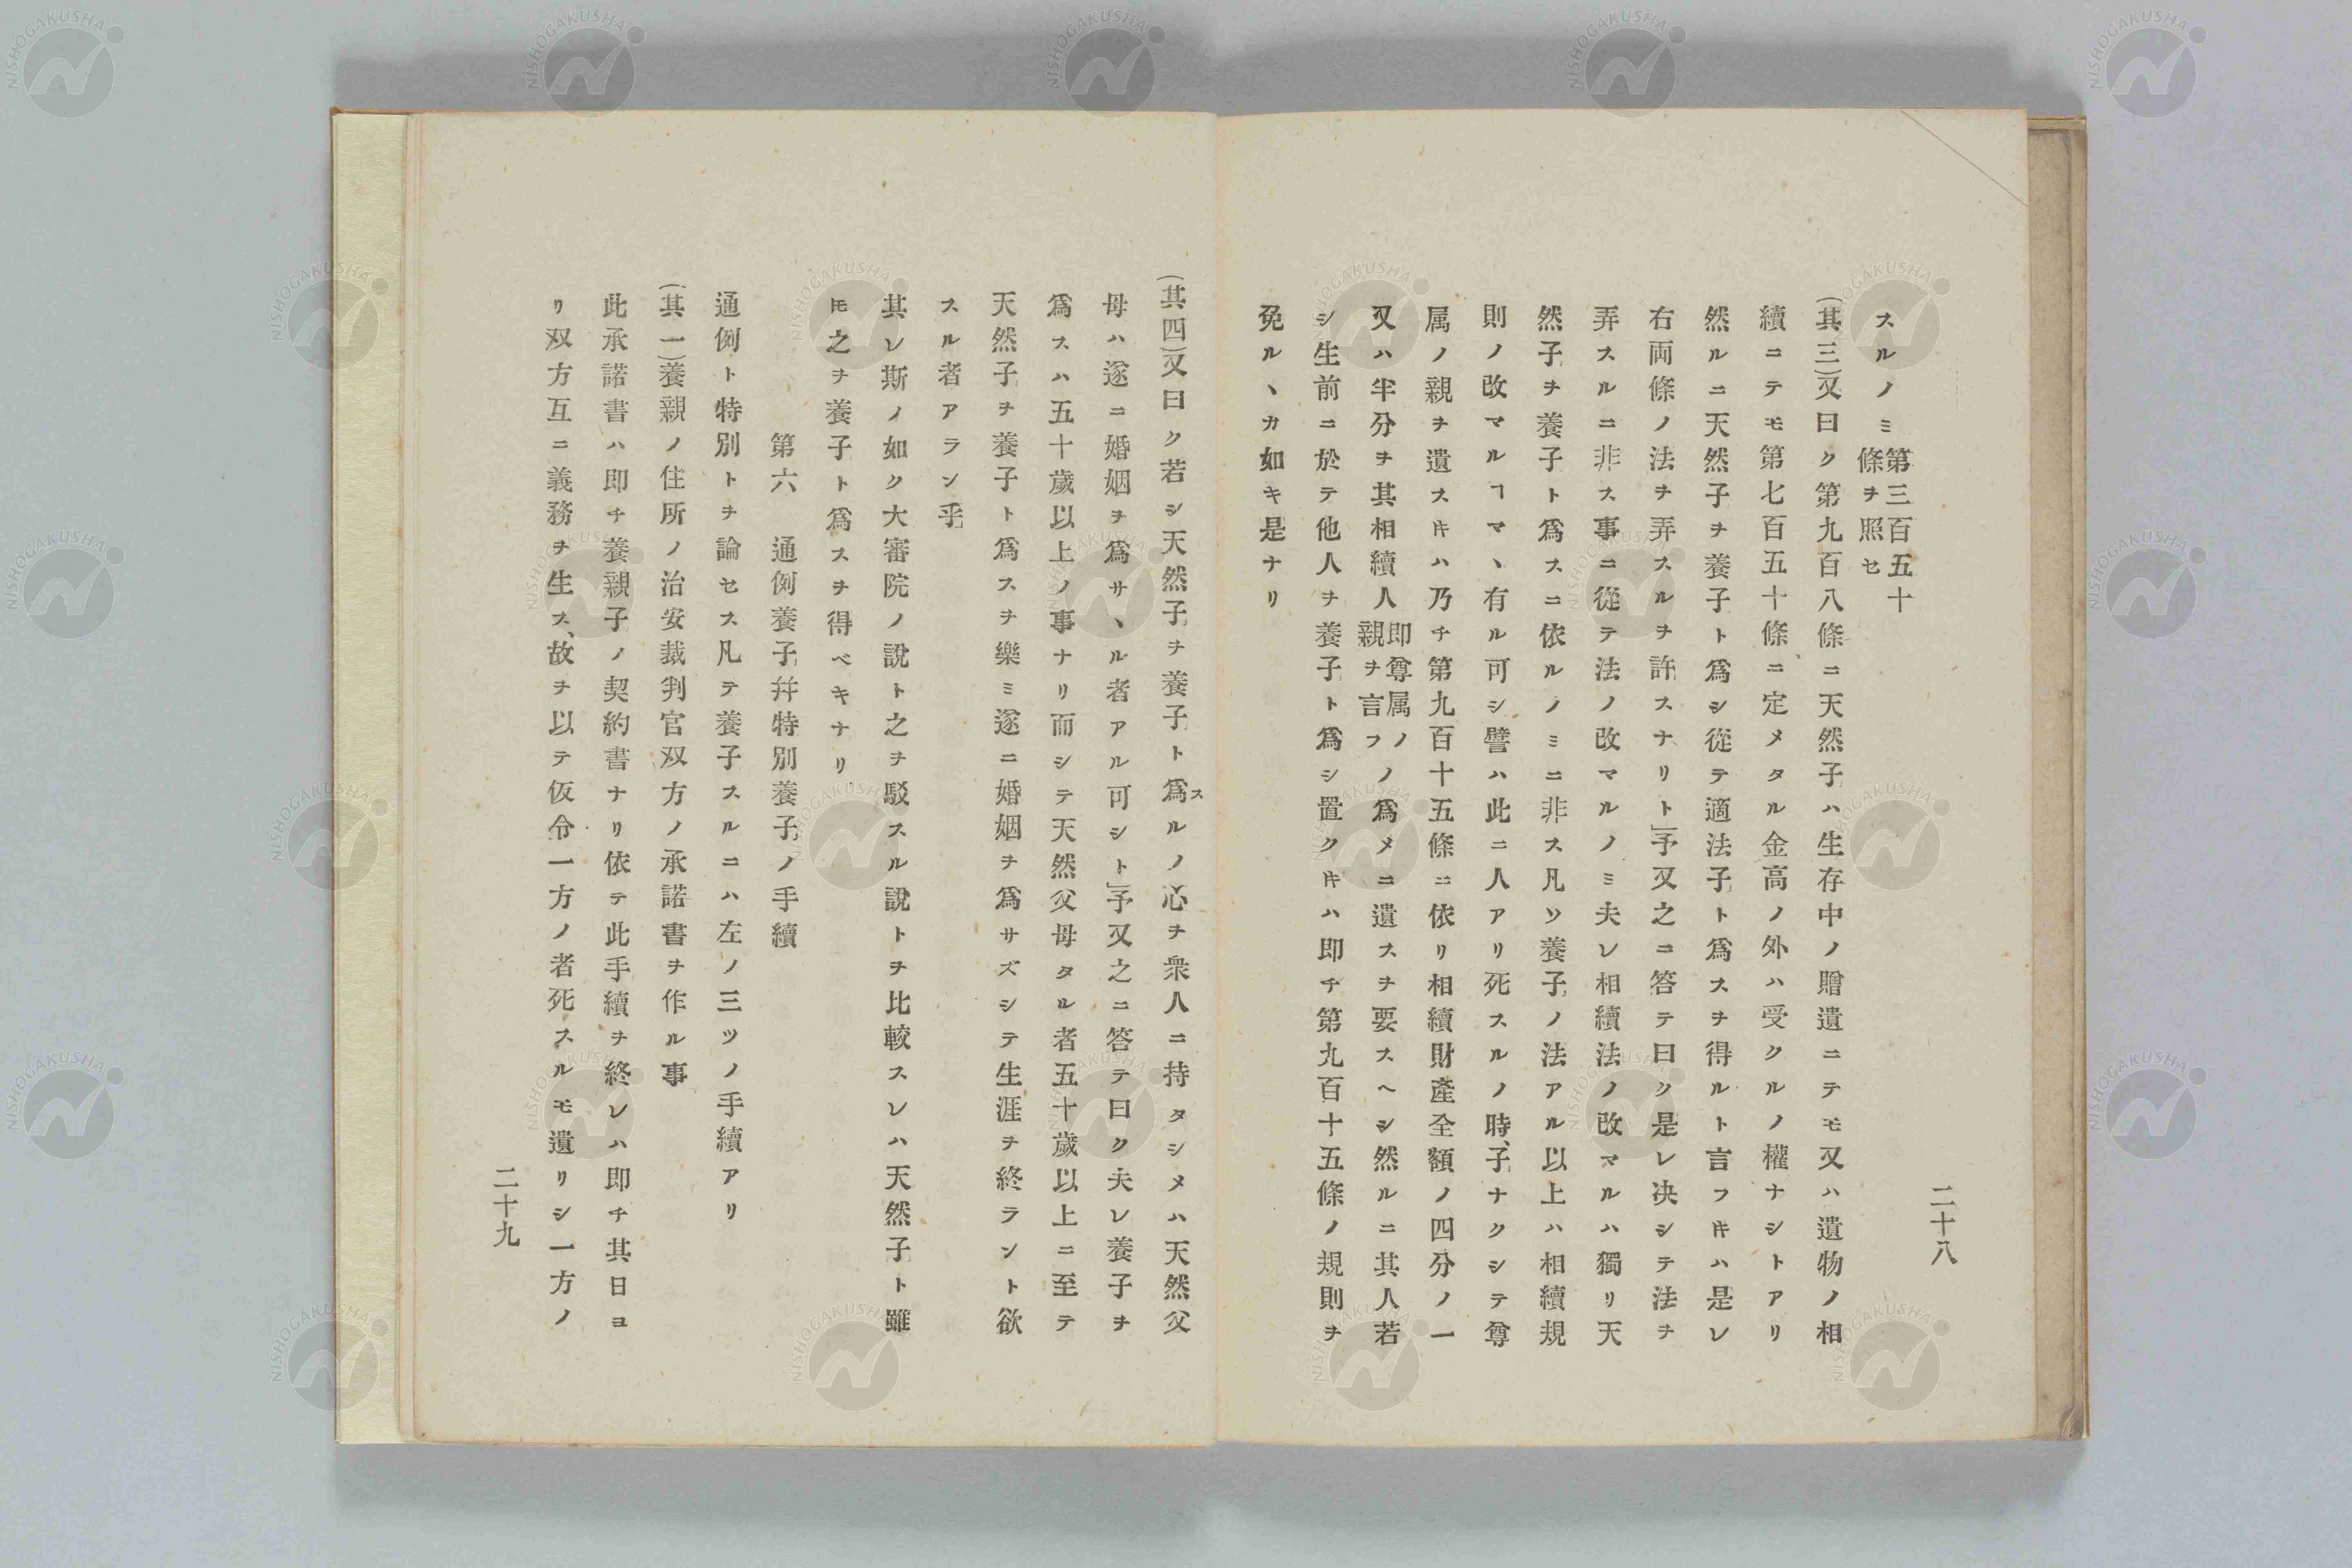 二十八
スルノミ第三百五十條ヲ照セ
(其三)又曰ク第九百八條ニ天然子ハ生存中ノ贈遺ニテモ又ハ遺物ノ相
續ニテモ第七百五十條ニ定メタル金高ノ外ハ受クルノ權ナシトアリ
然ルニ天然子ヲ養子ト爲シ從テ適法子ト爲スヲ得ルト言フ𪜈ハ是レ
右両條ノ法ヲ弄スルヲ許スナリト」予又之ニ答テ曰ク是レ决シテ法ヲ
弄スルニ非ス事ニ從テ法ノ改マルノミ夫レ相續法ノ改マルハ獨リ天
然子ヲ養子ト爲スニ依ルノミニ非ス凡ソ養子ノ法アル以上ハ相續規
則ノ改マルヿマヽ有ル可シ譬ハ此ニ人アリ死スルノ時、子ナクシテ尊
属ノ親ヲ遺スキハ乃チ第九百十五條ニ依リ相續財產全額ノ四分ノ一
又ハ半分ヲ其相續人即尊属ノ親ヲ言フノ爲メニ遺スヲ要スヘシ然ルニ其人若
シ生前ニ於テ他人ヲ養子ト爲シ置クキハ即チ第九百十五條ノ規則ヲ
免ルヽカ如キ是ナリ
(其四)又曰ク若シ天然子ヲ養子ト爲スルノ心ヲ衆人ニ持タシメハ天然父
母ハ遂ニ婚姻ヲ爲サヽル者アル可シト」予又之ニ答テ曰ク夫レ養子ヲ
爲スハ五十歲以上ノ事ナリ而シテ天然父母タル者五十歲以上ニ至テ
天然子ヲ養子ト爲スヲ樂ミ遂ニ婚姻ヲ爲サズシテ生涯ヲ終ラント欲
スル者アラン乎
其レ斯ノ如ク大審院ノ說ト之ヲ駁スル說トヲ比較スレハ天然子ト雖
𪜈之ヲ養子ト爲スヲ得ベキナリ
第六 通例養子幷特別養子ノ手續
通例ト特別トヲ論セス凡テ養子スルニハ左ノ三ツノ手續アリ
(其一)養親ノ住所ノ治安裁判官双方ノ承諾書ヲ作ル事
此承諾書ハ即チ養親子ノ契約書ナリ依テ此手續ヲ終レハ即チ其日ヨ
リ双方互ニ義務ヲ生ス、故ヲ以テ仮令一方ノ者死スルモ遺リシ一方ノ
二十九
NISHOGAKUSHA